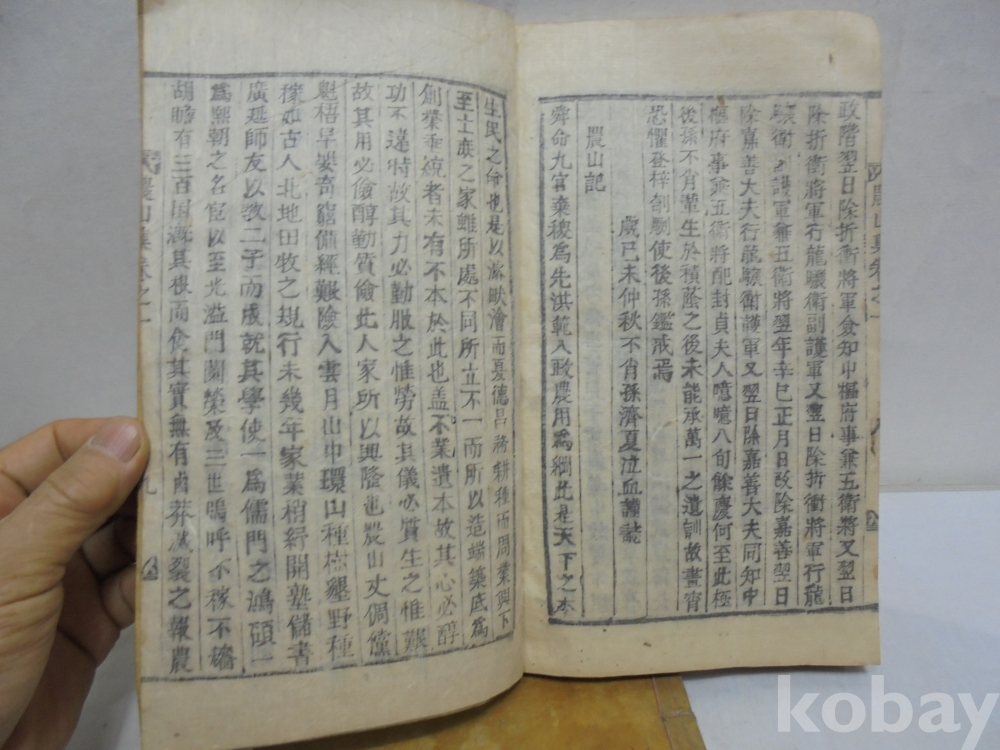 政階翌日除折衝將軍僉知中樞府事兼五衛將又翌日
除折衝將軍行龍驤衛副護軍又翌日除折衝將軍行龍
驤衛副護軍兼五衛將翌年辛巳正月日故除嘉善翌日
除嘉善大夫行龍驤衛護軍又翌日除嘉善大夫同知中
樞府事兼五衛將配封貞夫人噫噫八旬餘慶何至此極
後孫不肖輩生於積蔭之後未能承萬一之遺訓故書宵
恐懼登梓剞劂使後孫鑑戒焉
歲己未仲秋不肖孫濟夏泣血謹誌
農山記
舜命九官棄稷爲先洪範八政農用爲綱此是天下之本
農山集卷之一
生民之命也是以濬畎澮而憂德昌務耕稼而周業興下
至士庶之家雖所處不同所立不一而所以造端築底爲
創業垂統者未有不本於此也盖不業遺本故其心必醇
功不違時故其力必勤服之惟勞故其儀必質生之惟艱
故其用必儉醇勤質儉此人家所以興隆也農山丈倜儻
魁梧早晏奇窮備經艱險入雲月山中環山種樵墾野種
稼如古人北地田牧之規行未幾年家業稍紓開塾儲書
廣延師友以敎二子而成就其學使一爲儒門之鴻碩一
爲熙朝之名宦以至光溢門闌榮及三世嗚呼不稼不穡
胡瞻有三百囷溉其根而食其實無有鹵莽滅裂之報農
農山集卷之一
九
kobay